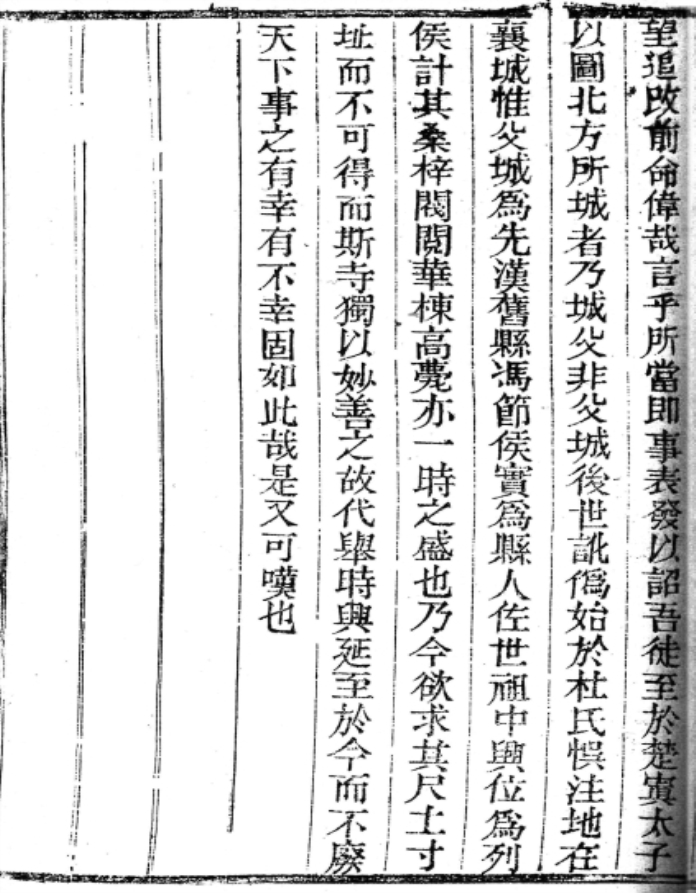 望追改前命偉哉言乎所當即事表發以詔吾徒至於楚寘太子
以圖北方所城者乃城父非父城後世訛僞始於杜氏悞注地在
襄城惟父城爲先漢舊縣馮節侯實爲縣人佐世祖中興位爲列
侯計其桑梓閥閱華棟高甍亦一時之盛也乃今欲求其尺土寸
址而不可得而斯寺獨以妙善之故代舉時興延至於今而不廢
天下事之有幸有不幸固如此哉是又可嘆也